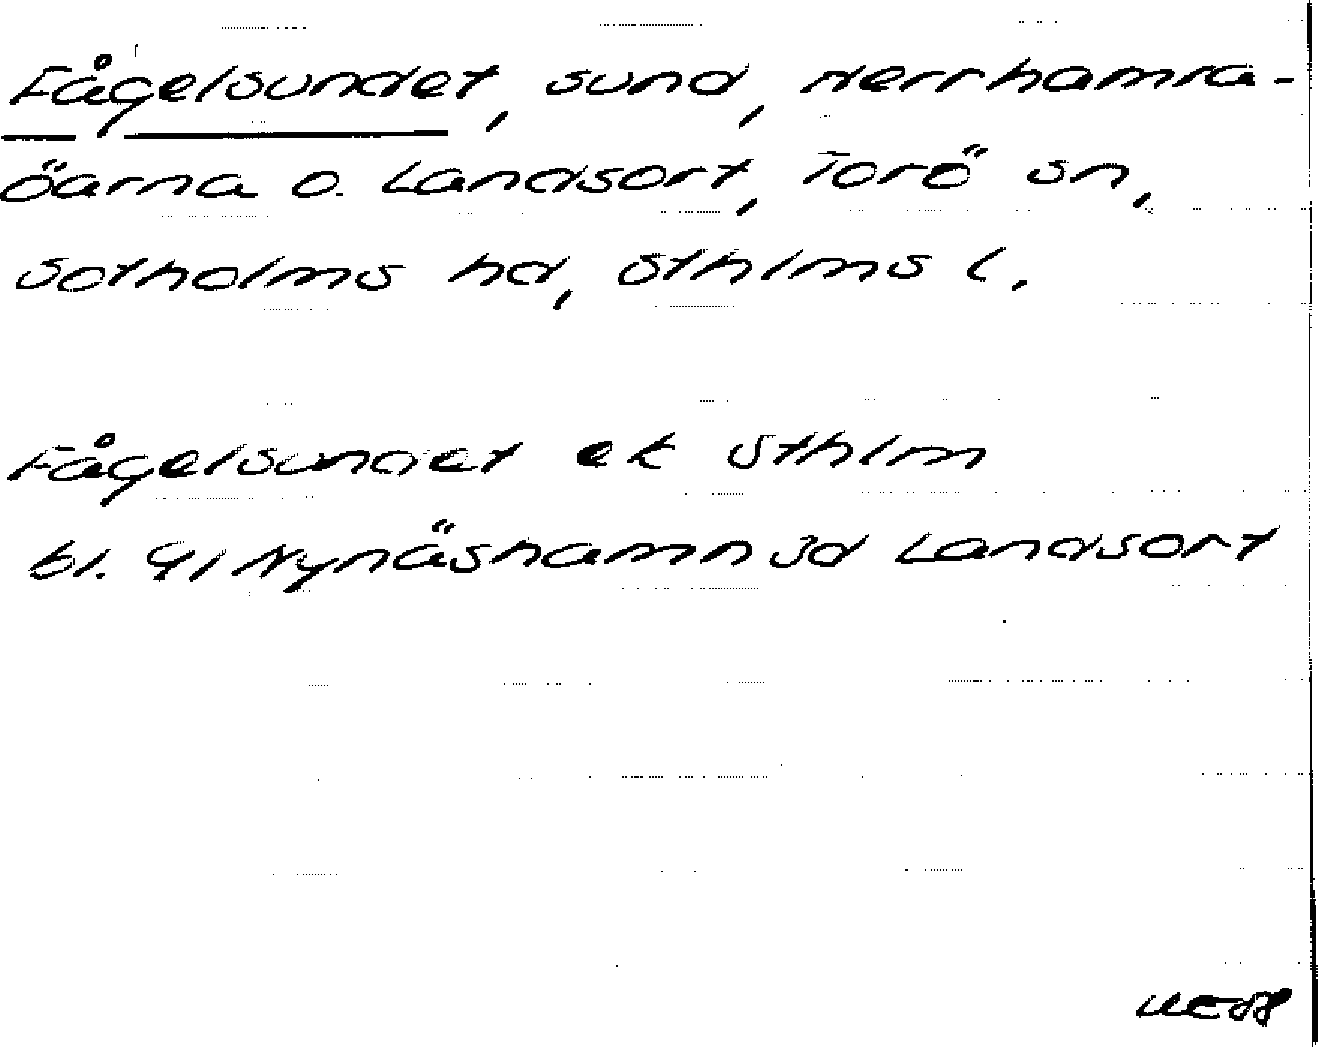 Fågelsundet, sund, Herrhamra-
öarna o. Landsort, Torö sn,
Sotholms hd, Sthlms l.
Fågelsundet ek Sthlm
bl. 91 Nynäshamn 3d Landsort